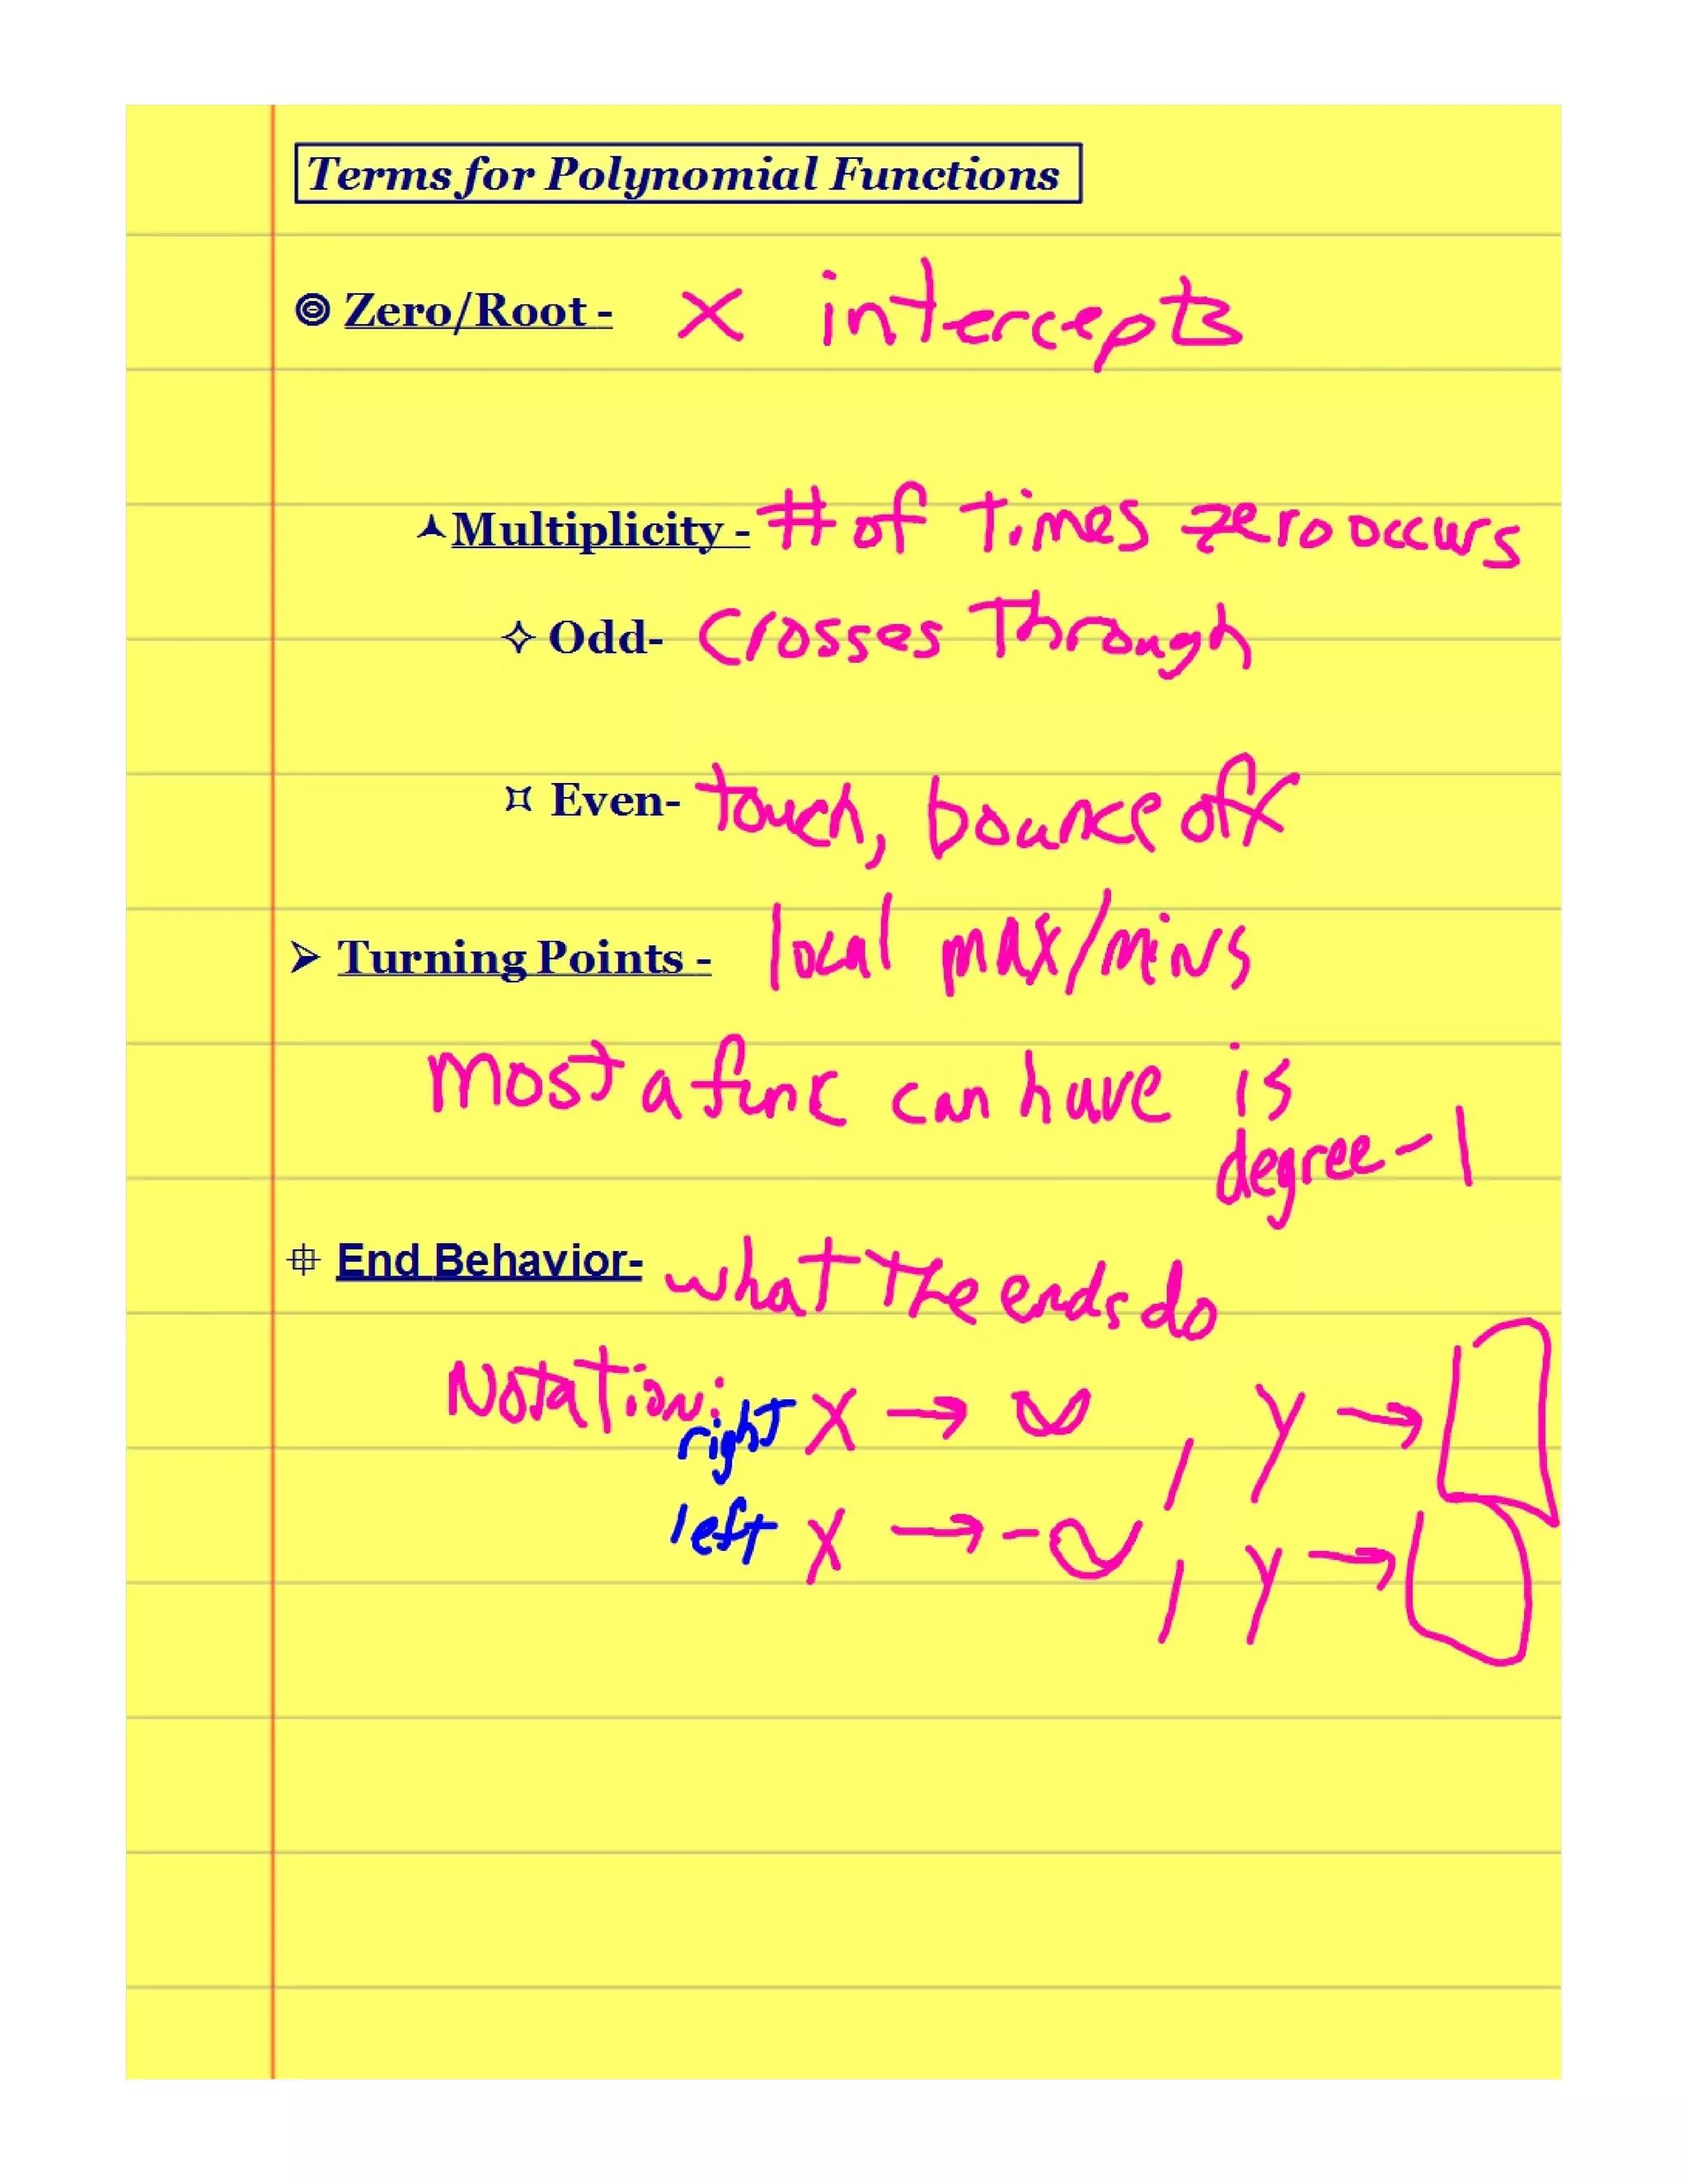 Terms for Polynomial Functions
Zero/Root - x intercepts
Multiplicity - # of times zero occurs
Odd- crosses through
Even- touch, bounce off
Turning Points - local max/mins
most a func can have is
degree - 1
End Behavior- what the ends do
Notation:
right x → ∞, y →
left x → -∞, y →